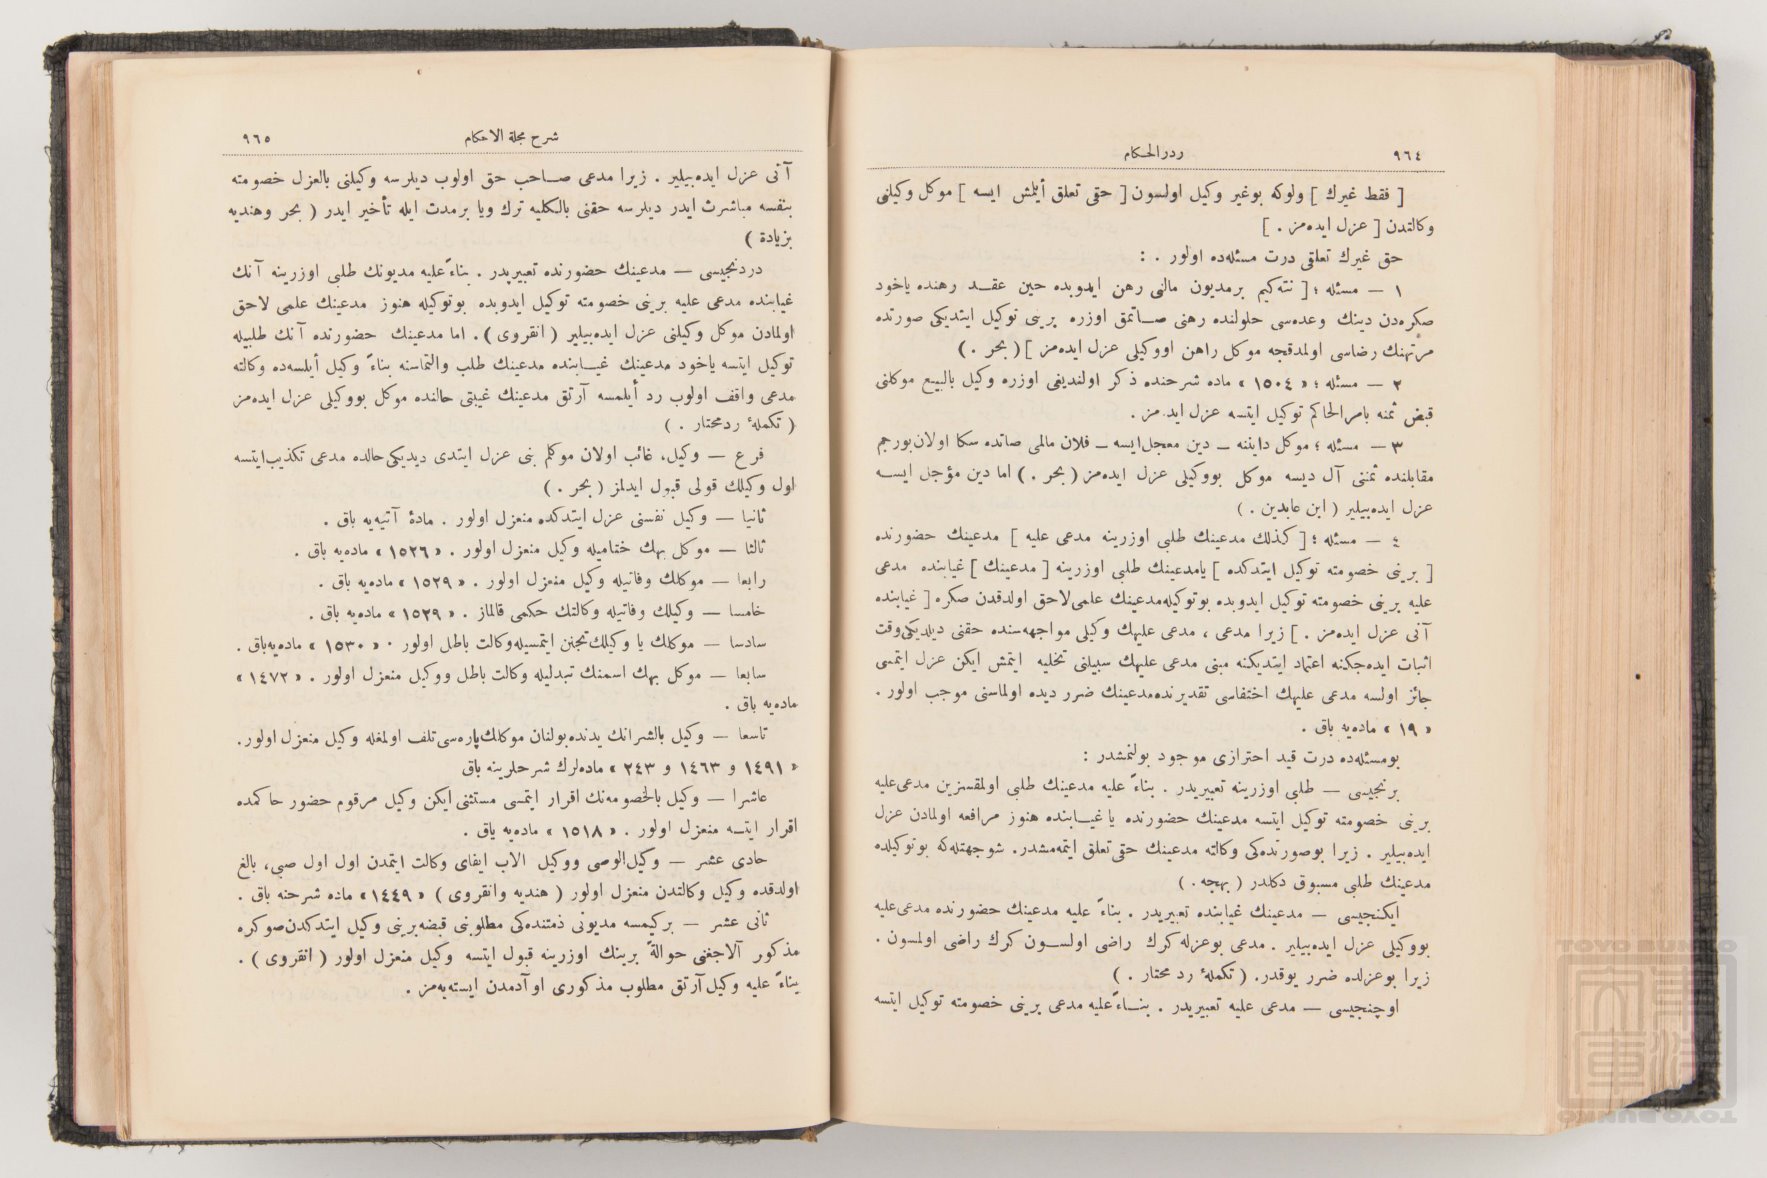 ٩٦٤
ردر الحكام
[ فقط غيرك ] ولوكه بوغير وكيل اولسون [ حقى تعلق أيلمش ايسه ] موكل وكيلنى
وكالتدن [ عزل ايده‌مز . ]
حق غيرك تعلقى درت مسئله‌ده اولور . :
١ — مسئله ؛ [ نته‌كيم برمديون مالنى رهن ايدوبده حين عقد رهنده ياخود
صكره‌دن دينك وعده‌سى حلولنده رهنى صاتمق اوزره برينى توكيل ايتديكى صورتده
مرتهنك رضاسى اولمدقجه موكل راهن اووكيلى عزل ايده‌مز ] ( بحر . )
٢ — مسئله ؛ « ١٥٠٤ » ماده شرحنده ذكر اولنديغى اوزره وكيل بالبيع موكلنى
قبض ثمنه بامرالحاكم توكيل ايتسه عزل ايده‌مز .
٣ — مسئله ؛ موكل دايننه — دين معجل‌ايسه — فلان مالمى صاتده سكا اولان‌بورجم
مقابلنده ثمننى آل ديسه موكل بووكيلى عزل ايده‌مز ( بحر . ) اما دين مؤجل ايسه
عزل ايده‌بيلير ( ابن عابدين . )
٤ — مسئله ؛ [ كذلك مدعينك طلبى اوزرينه مدعى عليه ] مدعينك حضورنده
[ برينى خصومته توكيل ايتدكده ] يامدعينك طلبى اوزرينه [ مدعينك ] غيابنده مدعى
عليه برينى خصومته توكيل ايدوبده بوتوكيله‌مدعينك علمى‌لاحق اولدقدن صكره [ غيابنده
آنى عزل ايده‌مز . ] زيرا مدعى ، مدعى عليهك وكيلى مواجهه‌سنده حقنى ديلديكى‌وقت
اثبات ايده‌جكينه اعتماد ايتديكينه مبنى مدعى عليهك سبيلنى تخليه ايتمش ايكن عزل ايتمسى
جائز اولسه مدعى عليهك اختفاسى تقديرنده‌مدعينك ضرر ديده اولماسنى موجب اولور .
« ١٩ » ماده‌يه باق .
بومسئله‌ده درت قيد احترازى موجود بولنمشدر :
برنجيسى — طلبى اوزرينه تعبيريدر . بناءً عليه مدعينك طلبى اولمقسزين مدعى‌عليه
برينى خصومته توكيل ايتسه مدعينك حضورنده يا غيابنده هنوز مرافعه اولمادن عزل
ايده‌بيلير . زيرا بوصورتده‌كى وكالته مدعينك حقى‌تعلق ايتمه‌مشدر. شوجهتله‌كه بوتوكيلده
مدعينك طلبى مسبوق دكلدر ( بهجه . )
ايكنجيسى — مدعينك غيابنده تعبيريدر . بناءً عليه مدعينك حضورنده مدعى‌عليه
بووكيلى عزل ايده‌بيلير . مدعى بوعزله كرك راضى اولسون كرك راضى اولمسون .
زيرا بوعزلده ضرر يوقدر. ( تكملهٔ رد محتار . )
اوچنجيسى — مدعى عليه تعبيريدر . بناءً عليه مدعى برينى خصومته توكيل ايتسه
شرح مجلة الاحكام
٩٦٥
آنى عزل ايده‌بيلير . زيرا مدعى صاحب حق اولوب ديلرسه وكيلنى بالعزل خصومته
بنفسه مباشرت ايدر ديلرسه حقنى بالكليه ترك ويا برمدت ايله تأخير ايدر ( بحر وهنديه
بزيادة )
دردنجيسى — مدعينك حضورنده تعبيريدر . بناءً عليه مديونك طلبى اوزرينه آنك
غيابنده مدعى عليه برينى خصومته توكيل ايدوبده بوتوكيله هنوز مدعينك علمى لاحق
اولمادن موكل وكيلنى عزل ايده‌بيلير ( انقروى ) . اما مدعينك حضورنده آنك طلبيله
توكيل ايتسه ياخود مدعينك غيابنده مدعينك طلب والتماسنه بناءً وكيل أيلسه‌ده وكالته
مدعى واقف اولوب رد أيلمسه آرتق مدعينك غيبتى حالنده موكل بووكيلى عزل ايده‌مز
( تكملهٔ ردمحتار . )
فرع — وكيل، غائب اولان موكلم بنى عزل ايتدى ديديكى‌حالده مدعى تكذيب‌ايتسه
اول وكيلك قولى قبول ايدلمز ( بحر . )
ثانيا — وكيل نفسنى عزل ايتدكده منعزل اولور . مادهٔ آتيه‌يه باق .
ثالثا — موكل بهك ختاميله وكيل منعزل اولور . « ١٥٢٦ » ماده‌يه باق .
رابعا — موكلك وفاتيله وكيل منعزل اولور . « ١٥٢٩ » ماده‌يه باق .
خامسا — وكيلك وفاتيله وكالتك حكمى قالماز . « ١٥٢٩ » ماده‌يه باق .
سادسا — موكلك يا وكيلك‌تجنن ايتمسيله‌وكالت باطل اولور . « ١٥٣٠ » ماده‌يه‌باق .
سابعا — موكل بهك اسمنك تبدليله وكالت باطل ووكيل منعزل اولور . « ١٤٧٢ »
ماده‌يه باق .
تاسعا — وكيل بالشرانك يدنده‌بولنان موكلك‌پاره‌سى‌تلف اولمغله وكيل منعزل اولور.
« ١٤٩١ و ١٤٦٣ و ٢٤٣ » ماده‌لرك شرحلرينه باق
عاشرا — وكيل بالخصومه‌نك اقرار ايتمسى مستثنى‌ايكن وكيل مرقوم حضور حاكمده
اقرار ايتسه منعزل اولور . « ١٥١٨ » ماده‌يه باق .
حادى عشر — وكيل‌الوصى ووكيل الاب ايفاى وكالت ايتمدن اول اول صبى، بالغ
اولدقده وكيل وكالتدن منعزل اولور ( هنديه وانقروى ) « ١٤٤٩ » ماده شرحنه باق .
ثانى عشر — بركيمسه مديونى ذمتنده‌كى مطلوبنى قبضه‌برينى وكيل ايتدكدن‌صوكره
مذكور آلاجغنى حوالةً برينك اوزرينه قبول ايتسه وكيل منعزل اولور ( انقروى ) .
بناءً عليه وكيل‌آرتق مطلوب مذكورى اوآدمدن ايسته‌يه‌مز .
TOYO BUNKO
TOYO BUNKO